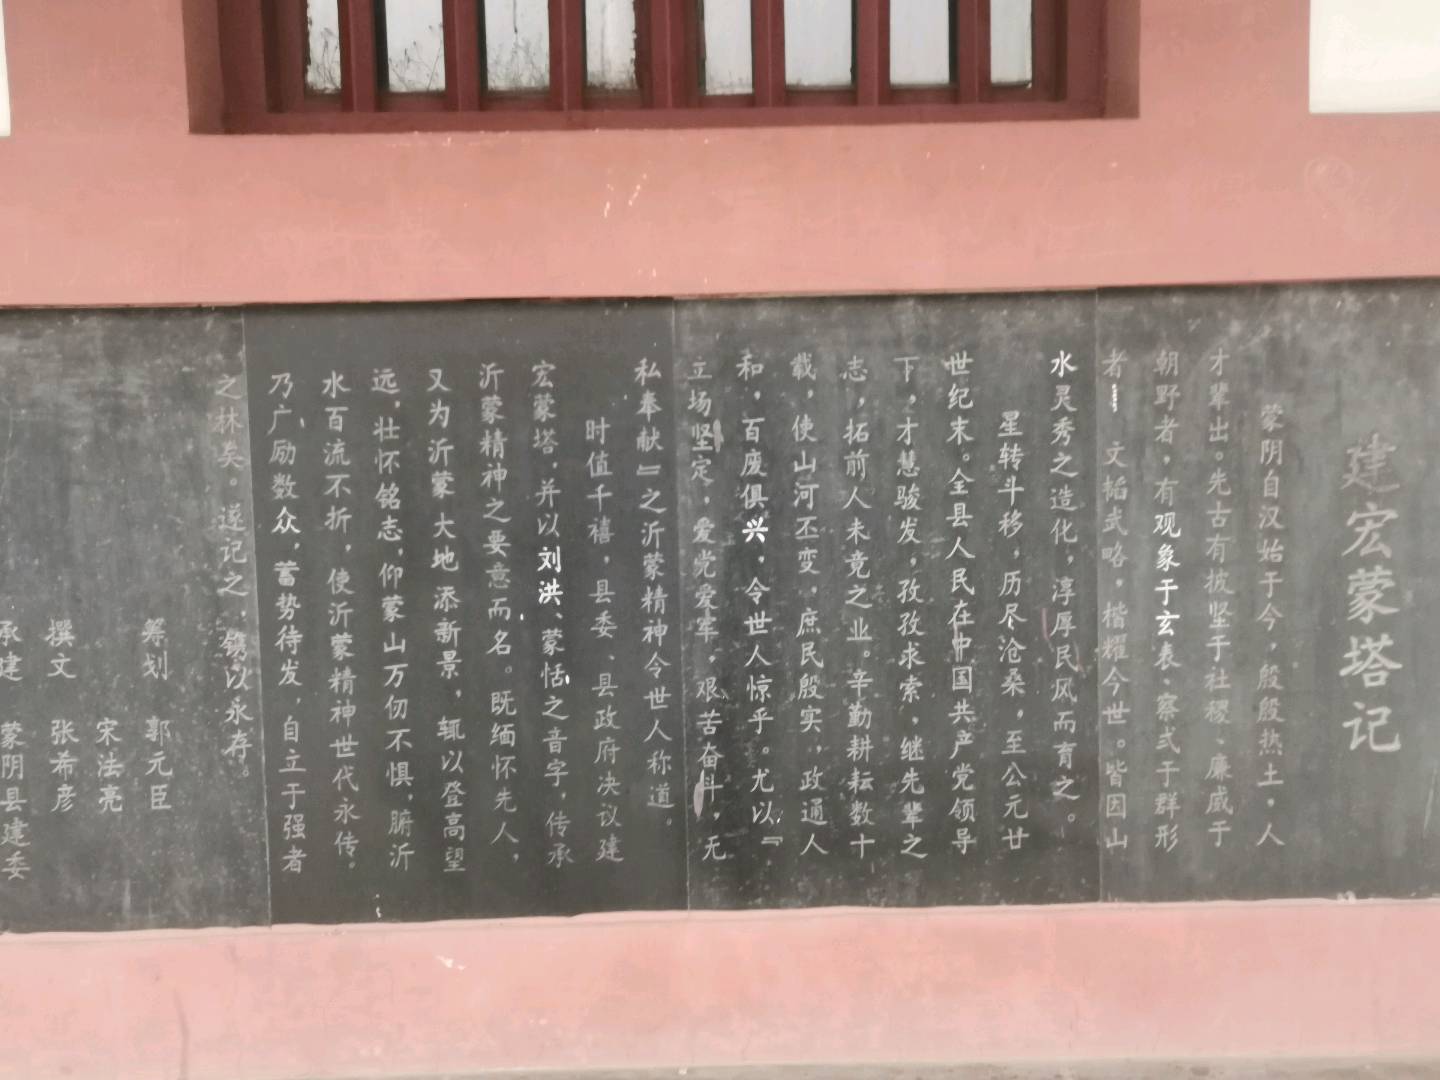 建宏蒙塔记
蒙阴自汉始于今，殷殷热土，人
才辈出。先古有披坚于社稷、廉威于
朝野者，有观象于玄表、察式于群形
者 文韬武略，楷耀今世。皆因山
水灵秀之造化，淳厚民风而育之。
星转斗移，历尽沧桑，至公元廿
世纪末。全县人民在中国共产党领导
下，才慧骏发，孜孜求索，继先辈之
志，拓前人未竟之业。辛勤耕耘数十
载，使山河丕变，庶民殷实，政通人
和，百废俱兴，令世人惊乎。尤以『
立场坚定，爱党爱军，艰苦奋斗，无
私奉献』之沂蒙精神令世人称道。
时值千禧，县委、县政府决议建
宏蒙塔，并以刘洪、蒙恬之音字，传承
沂蒙精神之要意而名。既缅怀先人，
又为沂蒙大地添新景，辄以登高望
远，壮怀铭志，仰蒙山万仞不惧，腑沂
水百流不折，使沂蒙精神世代永传。
乃广励数众，蓄势待发，自立于强者
之林矣。遂记之，镌以永存。
筹划 郭元臣
宋法亮
撰文 张希彦
承建 蒙阴县建委